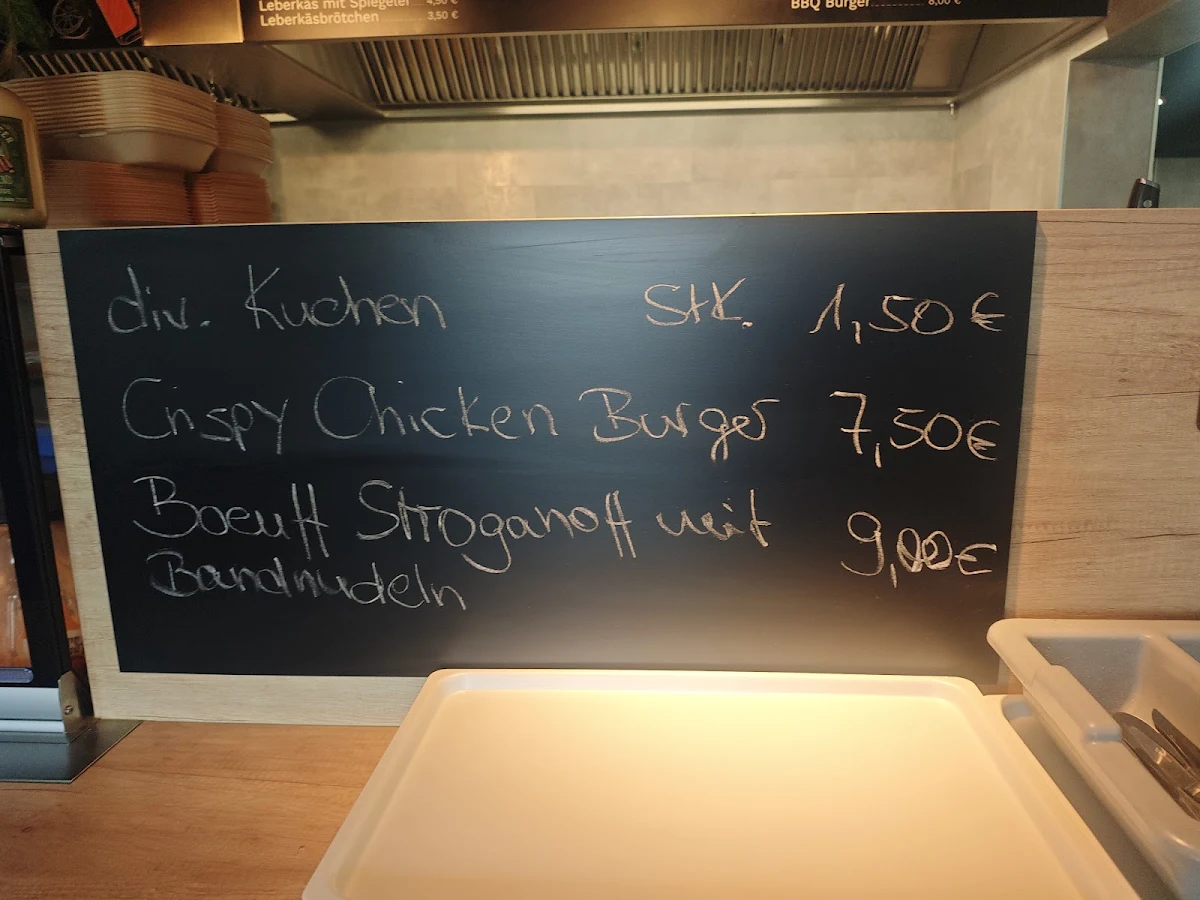 Leberkäs mit Spiegelei 4,50 €
Leberkäsbrötchen 3,50 €
BBQ Burger 8,00 €
div. Kuchen Stk. 1,50 €
Crispy Chicken Burger 7,50 €
Boeuff Stroganoff mit 9,00 €
Bandnudeln